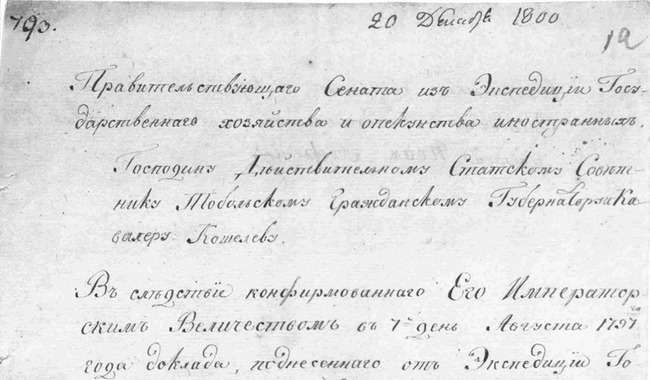 793.
20 Декабря 1800
12
Правительствующаго Сената изъ Экспедиціи Госу-
дарственнаго хозяйства и опекунства иностранныхъ.
Господину Дѣйствительному Статскому Совѣт-
нику Тобольскому Гражданскому Губернатору и Ка-
валеру Кошелеву.
Въ слѣдствіе конфирмованнаго Его Император-
скимъ Величествомъ въ 7й день Августа 1797го
года доклада, поднесеннаго отъ Экспедиціи Го-